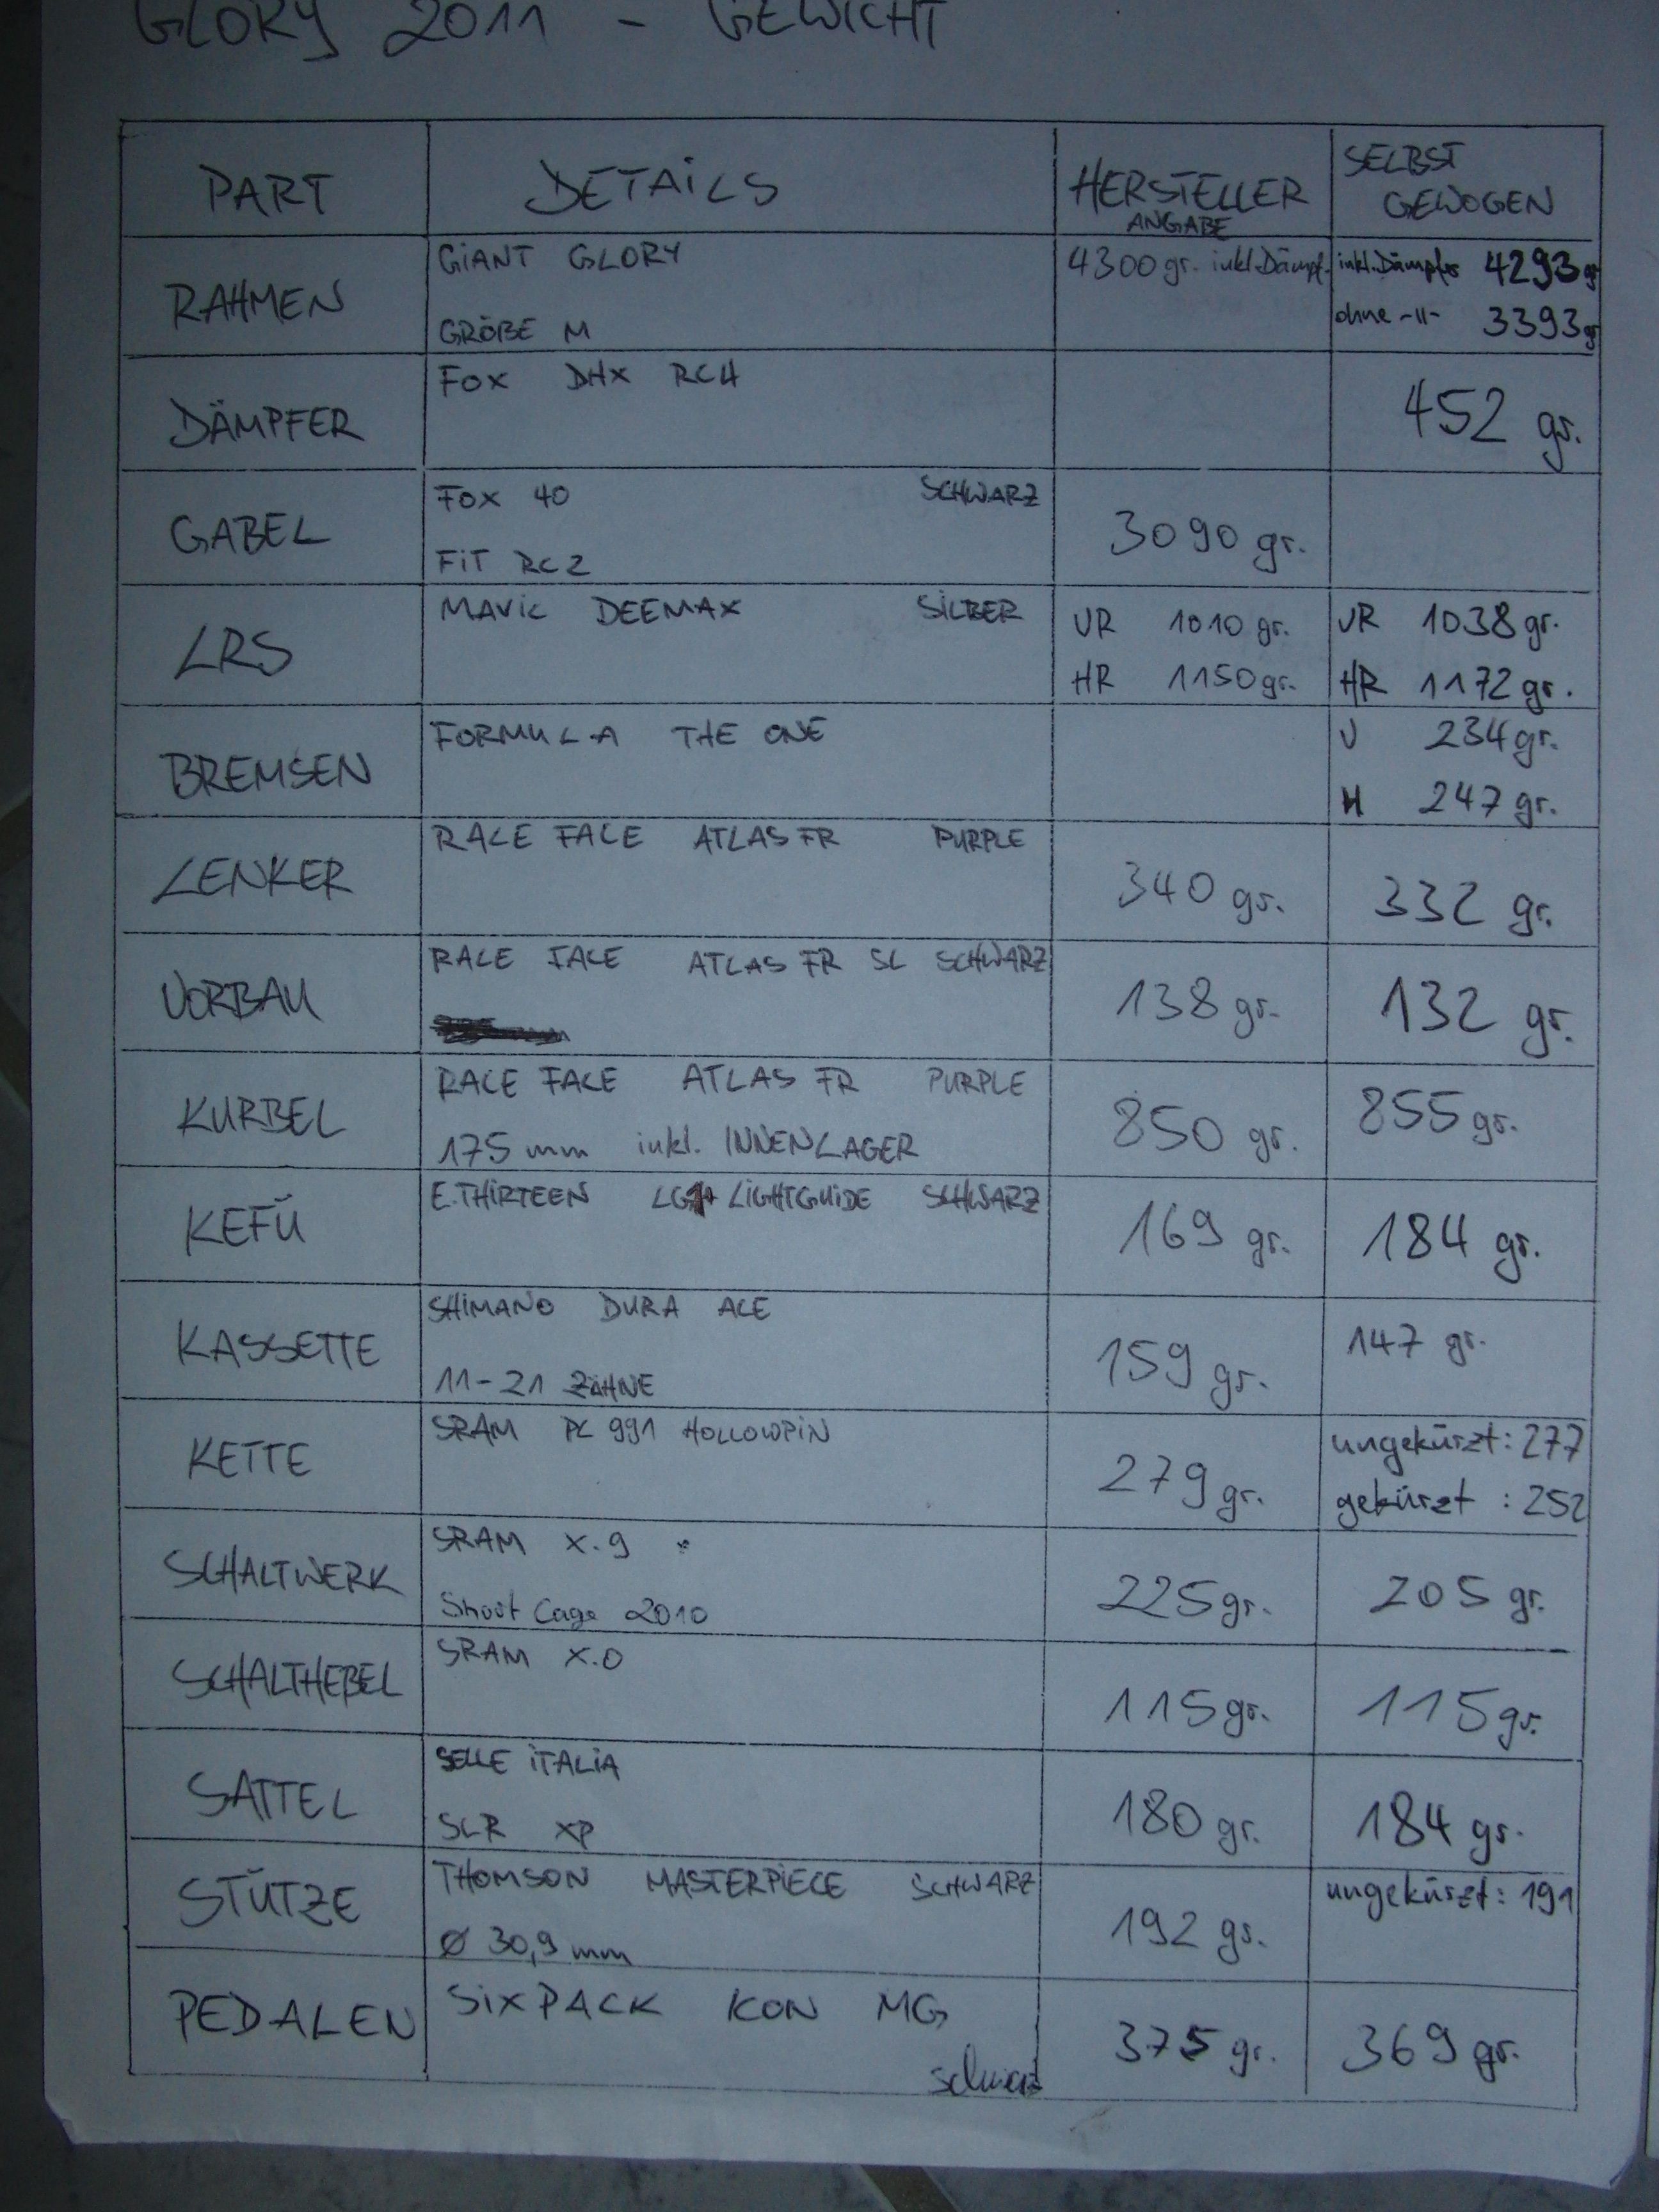 GLORY 2011 - GEWICHT
PART DETAILS HERSTELLER ANGABE SELBST GEWOGEN
RAHMEN
GIANT GLORY
GRÖßE M
4300 gr. inkl. Dämpf.
inkl. Dämpfer 4293 gr
ohne -11- 3393 gr
DÄMPFER
FOX DHX RC4
452 gr.
GABEL
FOX 40 SCHWARZ
FIT RC2
3090 gr.
LRS
MAVIC DEEMAX SILBER
VR 1010 gr.
HR 1150 gr.
VR 1038 gr.
HR 1172 gr.
BREMSEN
FORMULA THE ONE
V 234 gr.
H 247 gr.
LENKER
RACE FACE ATLAS FR PURPLE
340 gr.
332 gr.
VORBAU
RACE FACE ATLAS FR SL SCHWARZ
138 gr.
132 gr.
KURBEL
RACE FACE ATLAS FR PURPLE
175 mm inkl. INNENLAGER
850 gr.
855 gr.
KEFÜ
E.THIRTEEN LG1+ LIGHTGUIDE SCHWARZ
169 gr.
184 gr.
KASSETTE
SHIMANO DURA ACE
11-21 ZÄHNE
159 gr.
147 gr.
KETTE
SRAM PC 991 HOLLOWPIN
279 gr.
ungekürzt: 277
gekürzt : 252
SCHALTWERK
SRAM X.9
Short Cage 2010
225 gr.
205 gr.
SCHALTHEBEL
SRAM X.0
115 gr.
115 gr.
SATTEL
SELLE ITALIA
SLR XP
180 gr.
184 gr.
STÜTZE
THOMSON MASTERPIECE SCHWARZ
Ø 30,9 mm
192 gr.
ungekürzt: 191
PEDALEN
SIXPACK ICON MG
schwarz
375 gr.
369 gr.